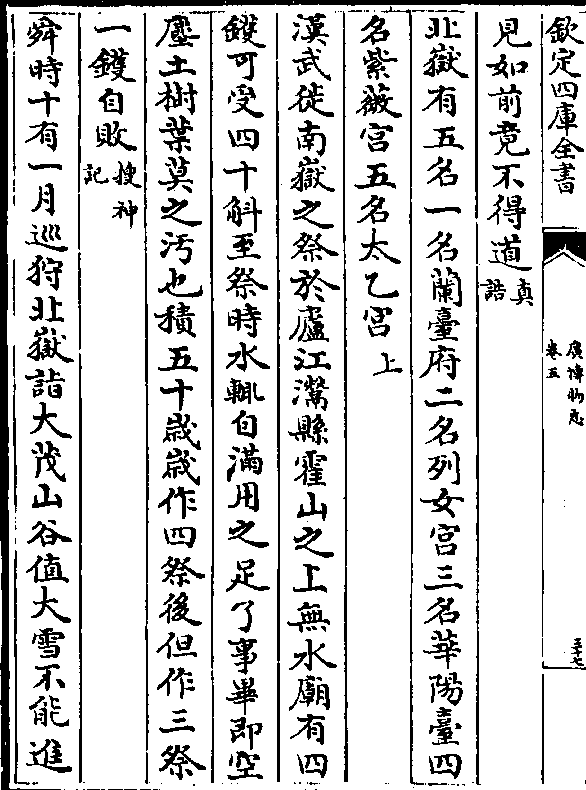 欽定四庫全書
廣博物志
卷五
三十七
見如前竟不得道真誥
北嶽有五名一名蘭臺府二名列女宮三名華陽臺四
名紫薇宮五名太乙宮上
漢武徙南嶽之祭於廬江灊縣霍山之上無水廟有四
鑊可受四十斛至祭時水輒自滿用之足了事畢即空
塵土樹葉莫之汚也積五十歲歲作四祭後但作三祭
一鑊自敗搜神記
舜時十有一月巡狩北嶽詣大茂山谷值大雪不能進